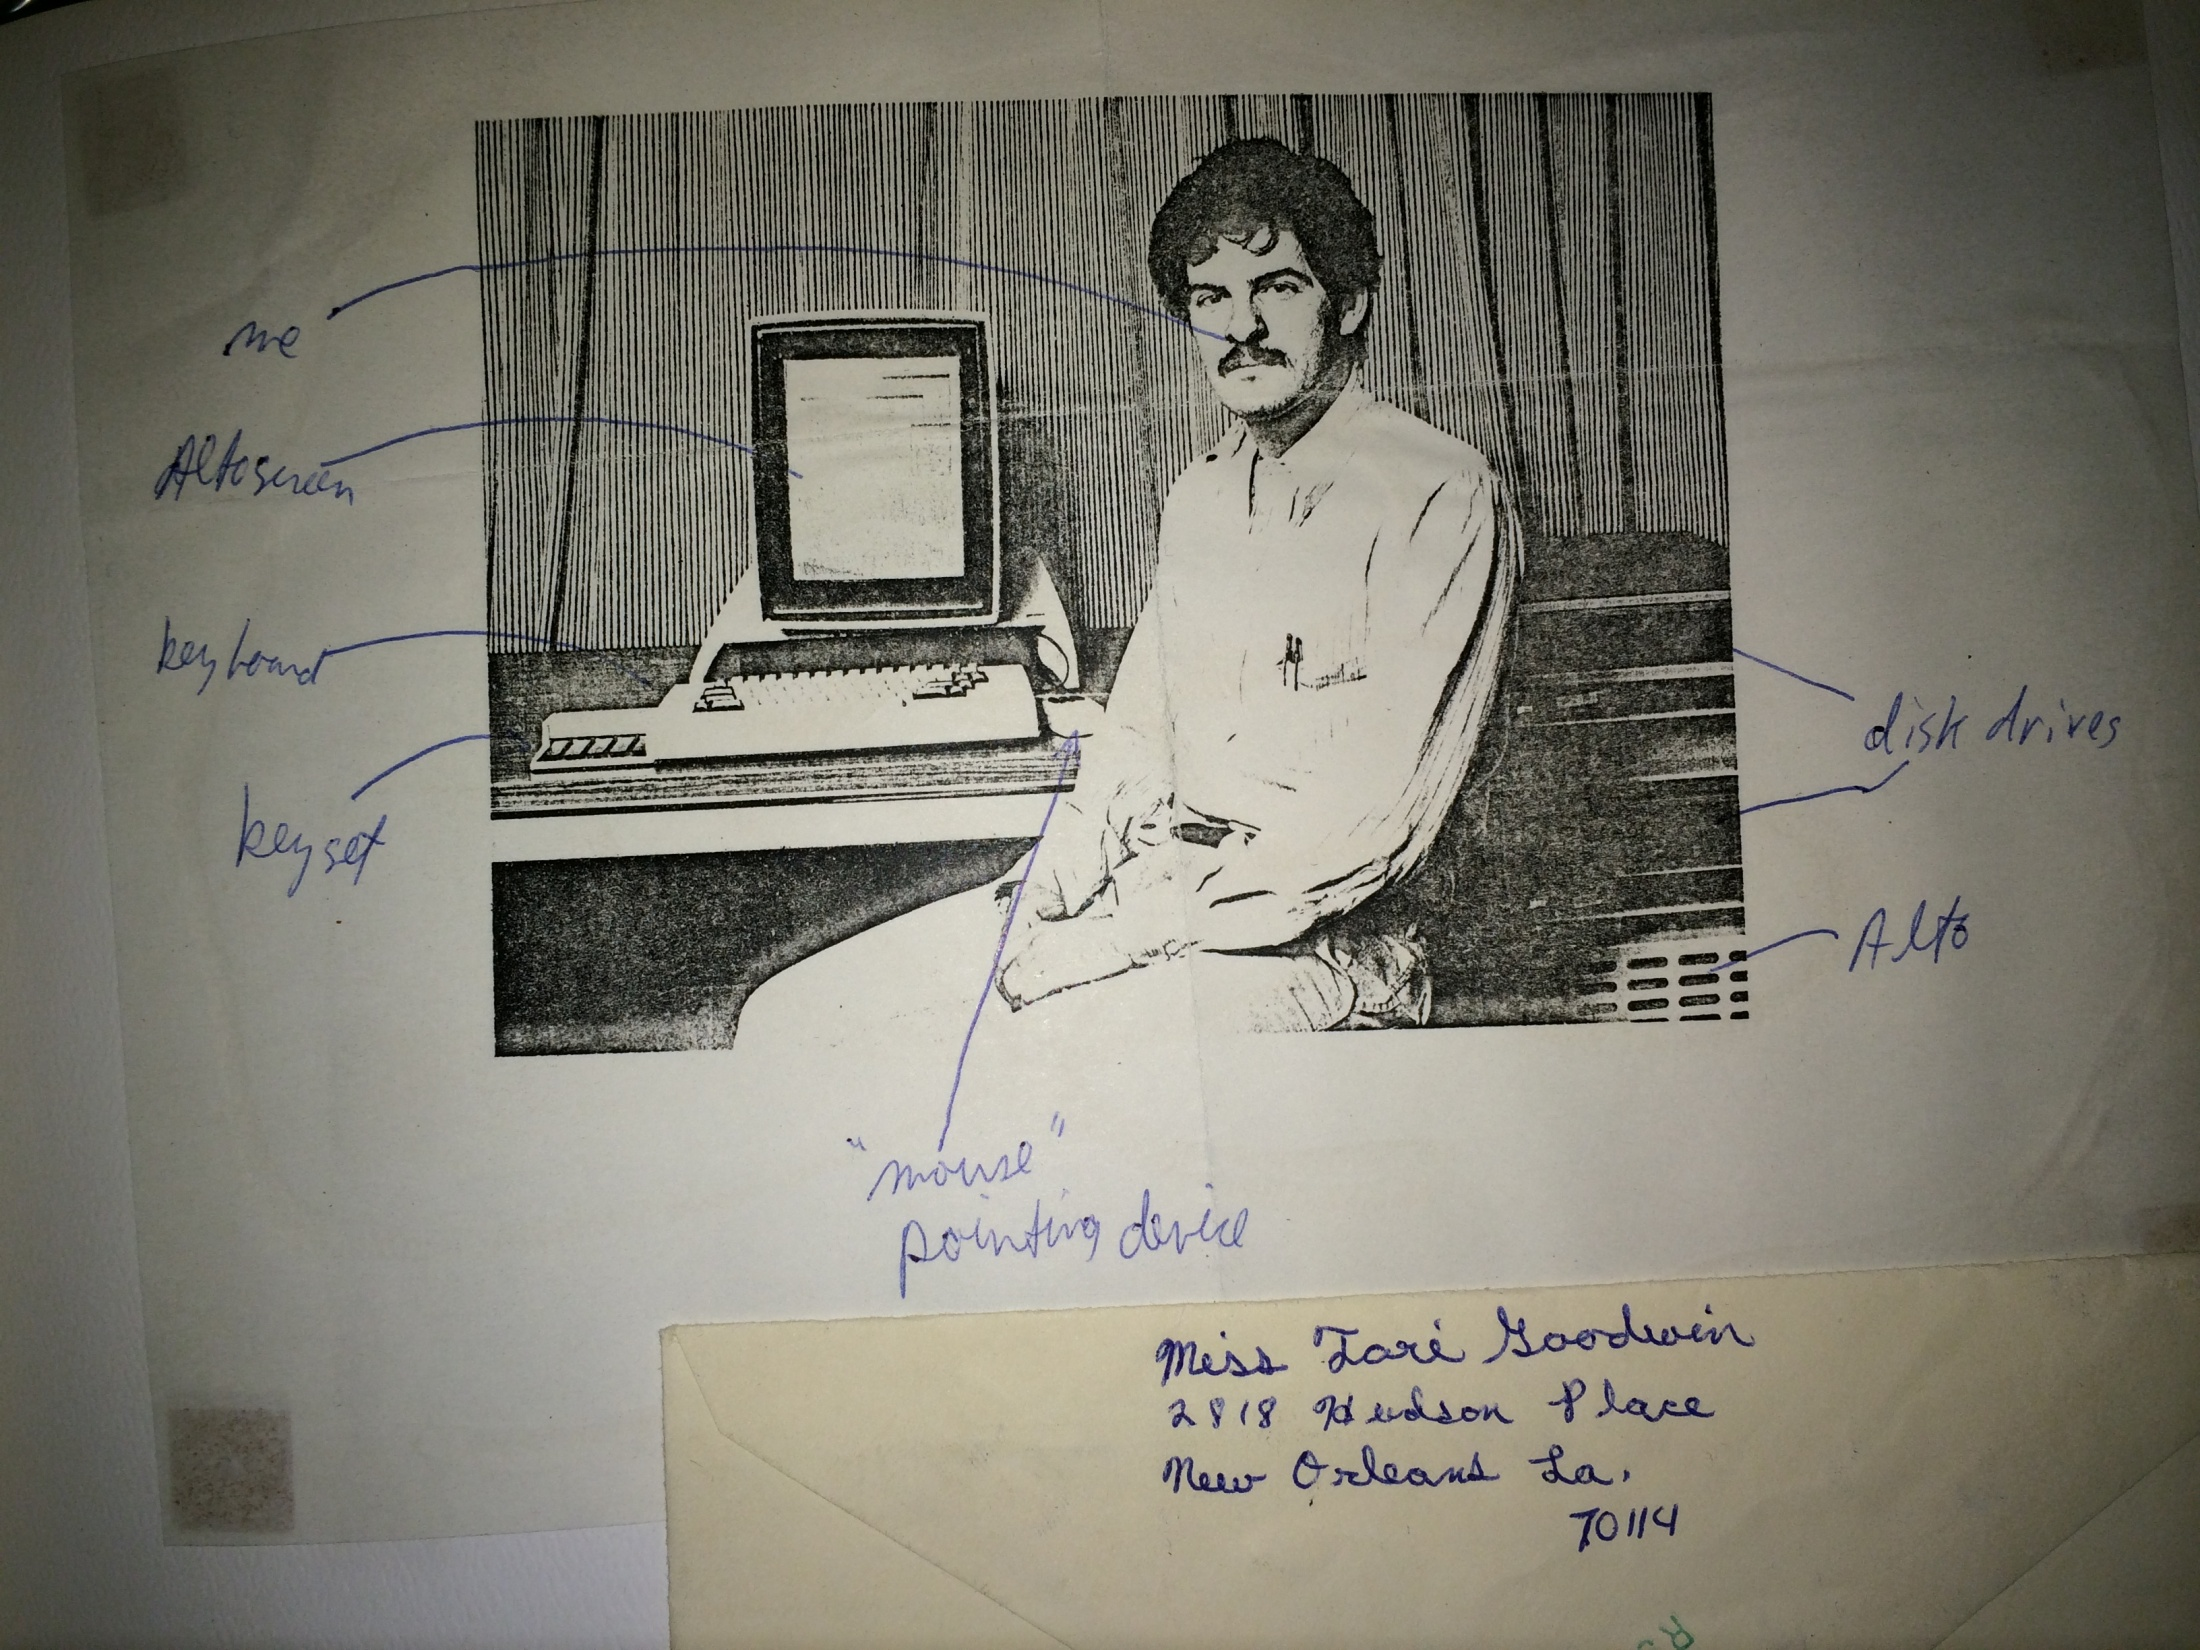 me
Alto screen
keyboard
keyset
disk drives
Alto
"mouse"
pointing device
Miss Tari Goodwin
2818 Hudson Place
New Orleans La.
70114